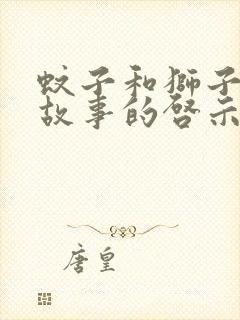 蚊子和獅子
故事的啓示
唐皇